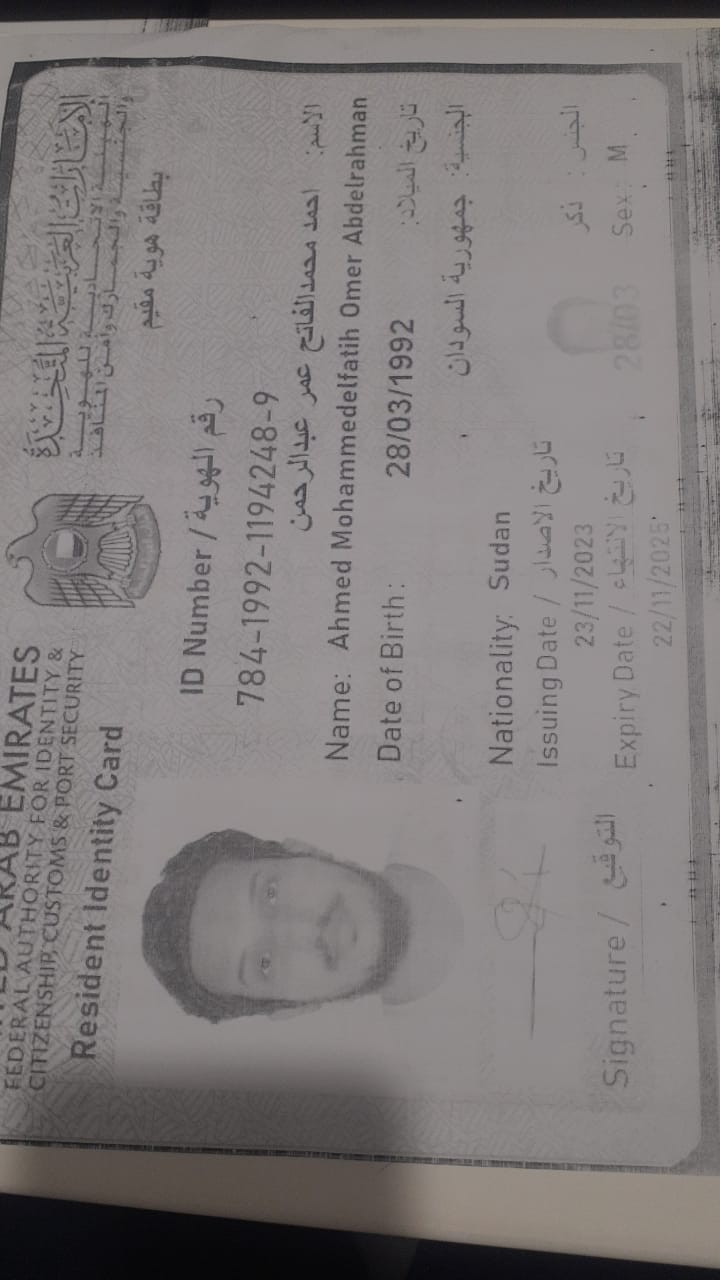 الإمارات العربية المتحدة
الهيئة الاتحادية للهوية
والجنسية والجمارك وأمن المنافذ
بطاقة هوية مقيم
ARAB EMIRATES
FEDERAL AUTHORITY FOR IDENTITY &
CITIZENSHIP, CUSTOMS & PORT SECURITY
Resident Identity Card
ID Number / رقم الهوية
784-1992-1194248-9
الاسم: احمد محمدالفاتح عمر عبدالرحمن
Name: Ahmed Mohammedelfatih Omer Abdelrahman
Date of Birth: 28/03/1992 تاريخ الميلاد:
الجنسية: جمهورية السودان
Nationality: Sudan
Issuing Date / تاريخ الاصدار
23/11/2023
الجنس: ذكر
Sex: M
Expiry Date / تاريخ الانتهاء
22/11/2025
28/03
Signature / التوقيع